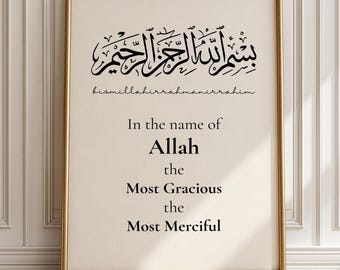 بِسْمِ اللهِ الرَّحْمٰنِ الرَّحِيْمِ
bismillahirrahmanirrahim
In the name of
Allah
the
Most Gracious
the
Most Merciful